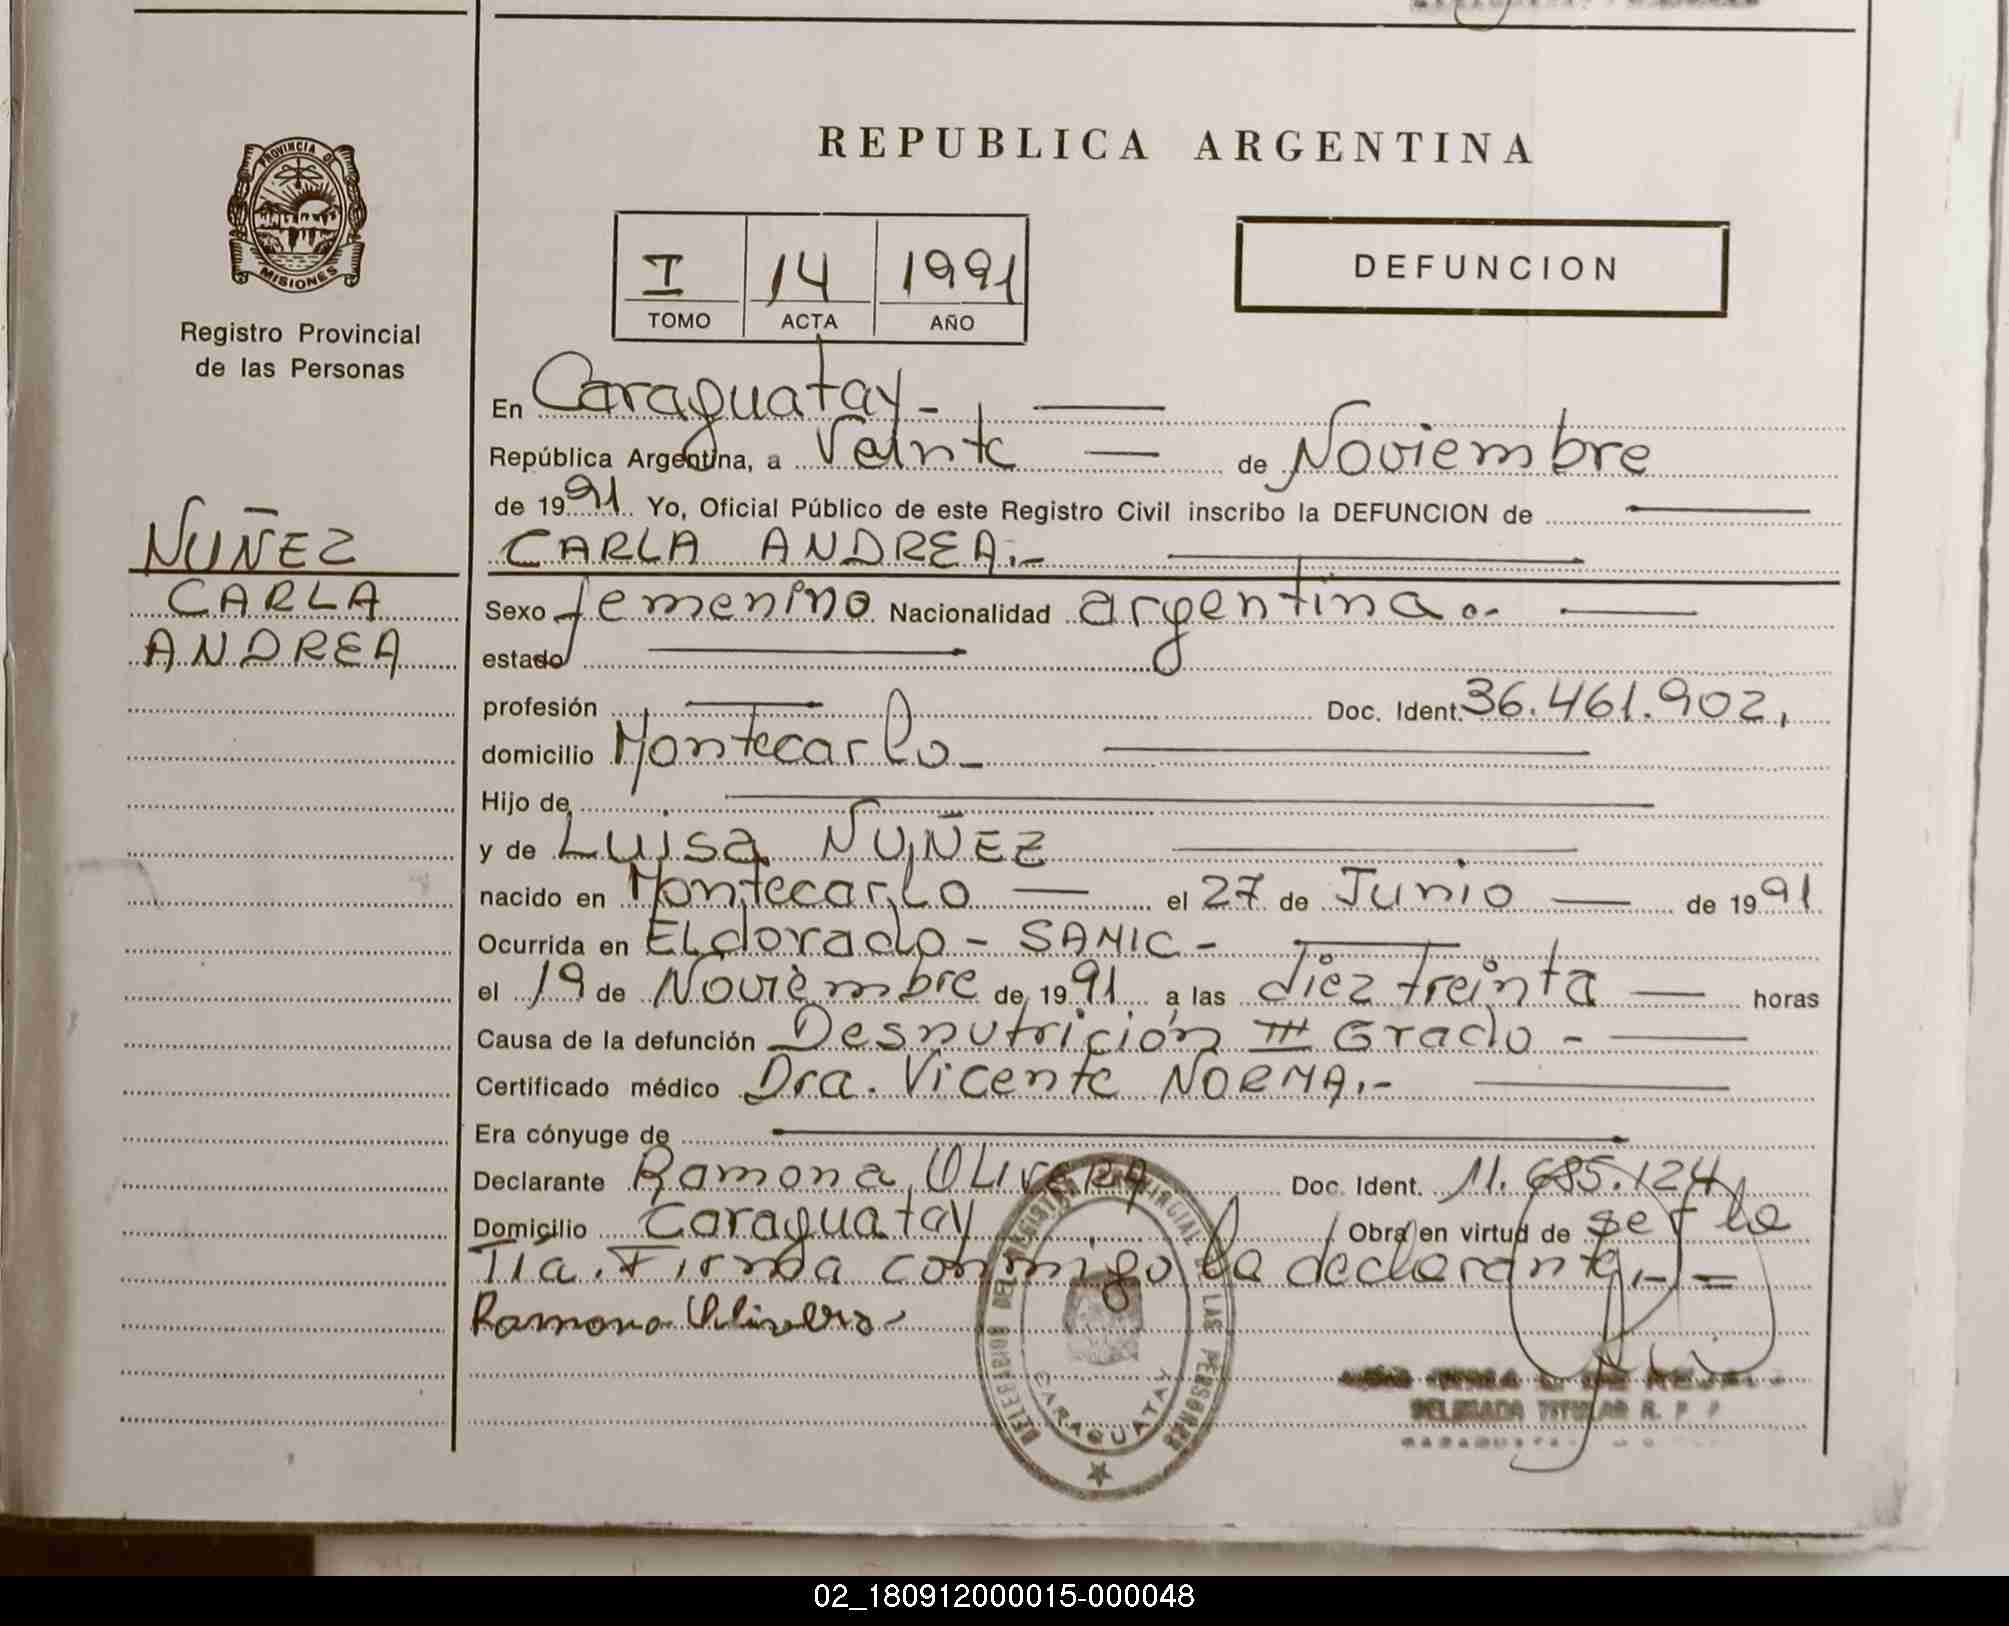 REPUBLICA ARGENTINA
PROVINCIA DE
MISIONES
Registro Provincial
de las Personas
I 14 1991
TOMO ACTA AÑO
DEFUNCION
NUÑEZ
CARLA
ANDREA
En Caraguatay -
República Argentina, a Veinte de Noviembre
de 1991 Yo, Oficial Público de este Registro Civil inscribo la DEFUNCION de
CARLA ANDREA.-
Sexo femenino Nacionalidad argentina.-
estado
profesión Doc. Ident. 36.461.902,
domicilio Montecarlo -
Hijo de
y de Luisa NUÑEZ
nacido en Montecarlo el 27 de Junio de 1991
Ocurrida en Eldorado - SAMIC -
el 19 de Noviembre de 1991 a las diez treinta horas
Causa de la defunción Desnutrición III Grado -
Certificado médico Dra. Vicente NORMA.-
Era cónyuge de
Declarante Ramona OLIVERA Doc. Ident. 11.685.124
Domicilio Caraguatay Obra en virtud de ser la
Tía. Firma conmigo la declarante.- =
Ramona
LAS PERSONAS
CARAGUATAY
DELEGADA TITULAR R. P. P.
02_180912000015-000048